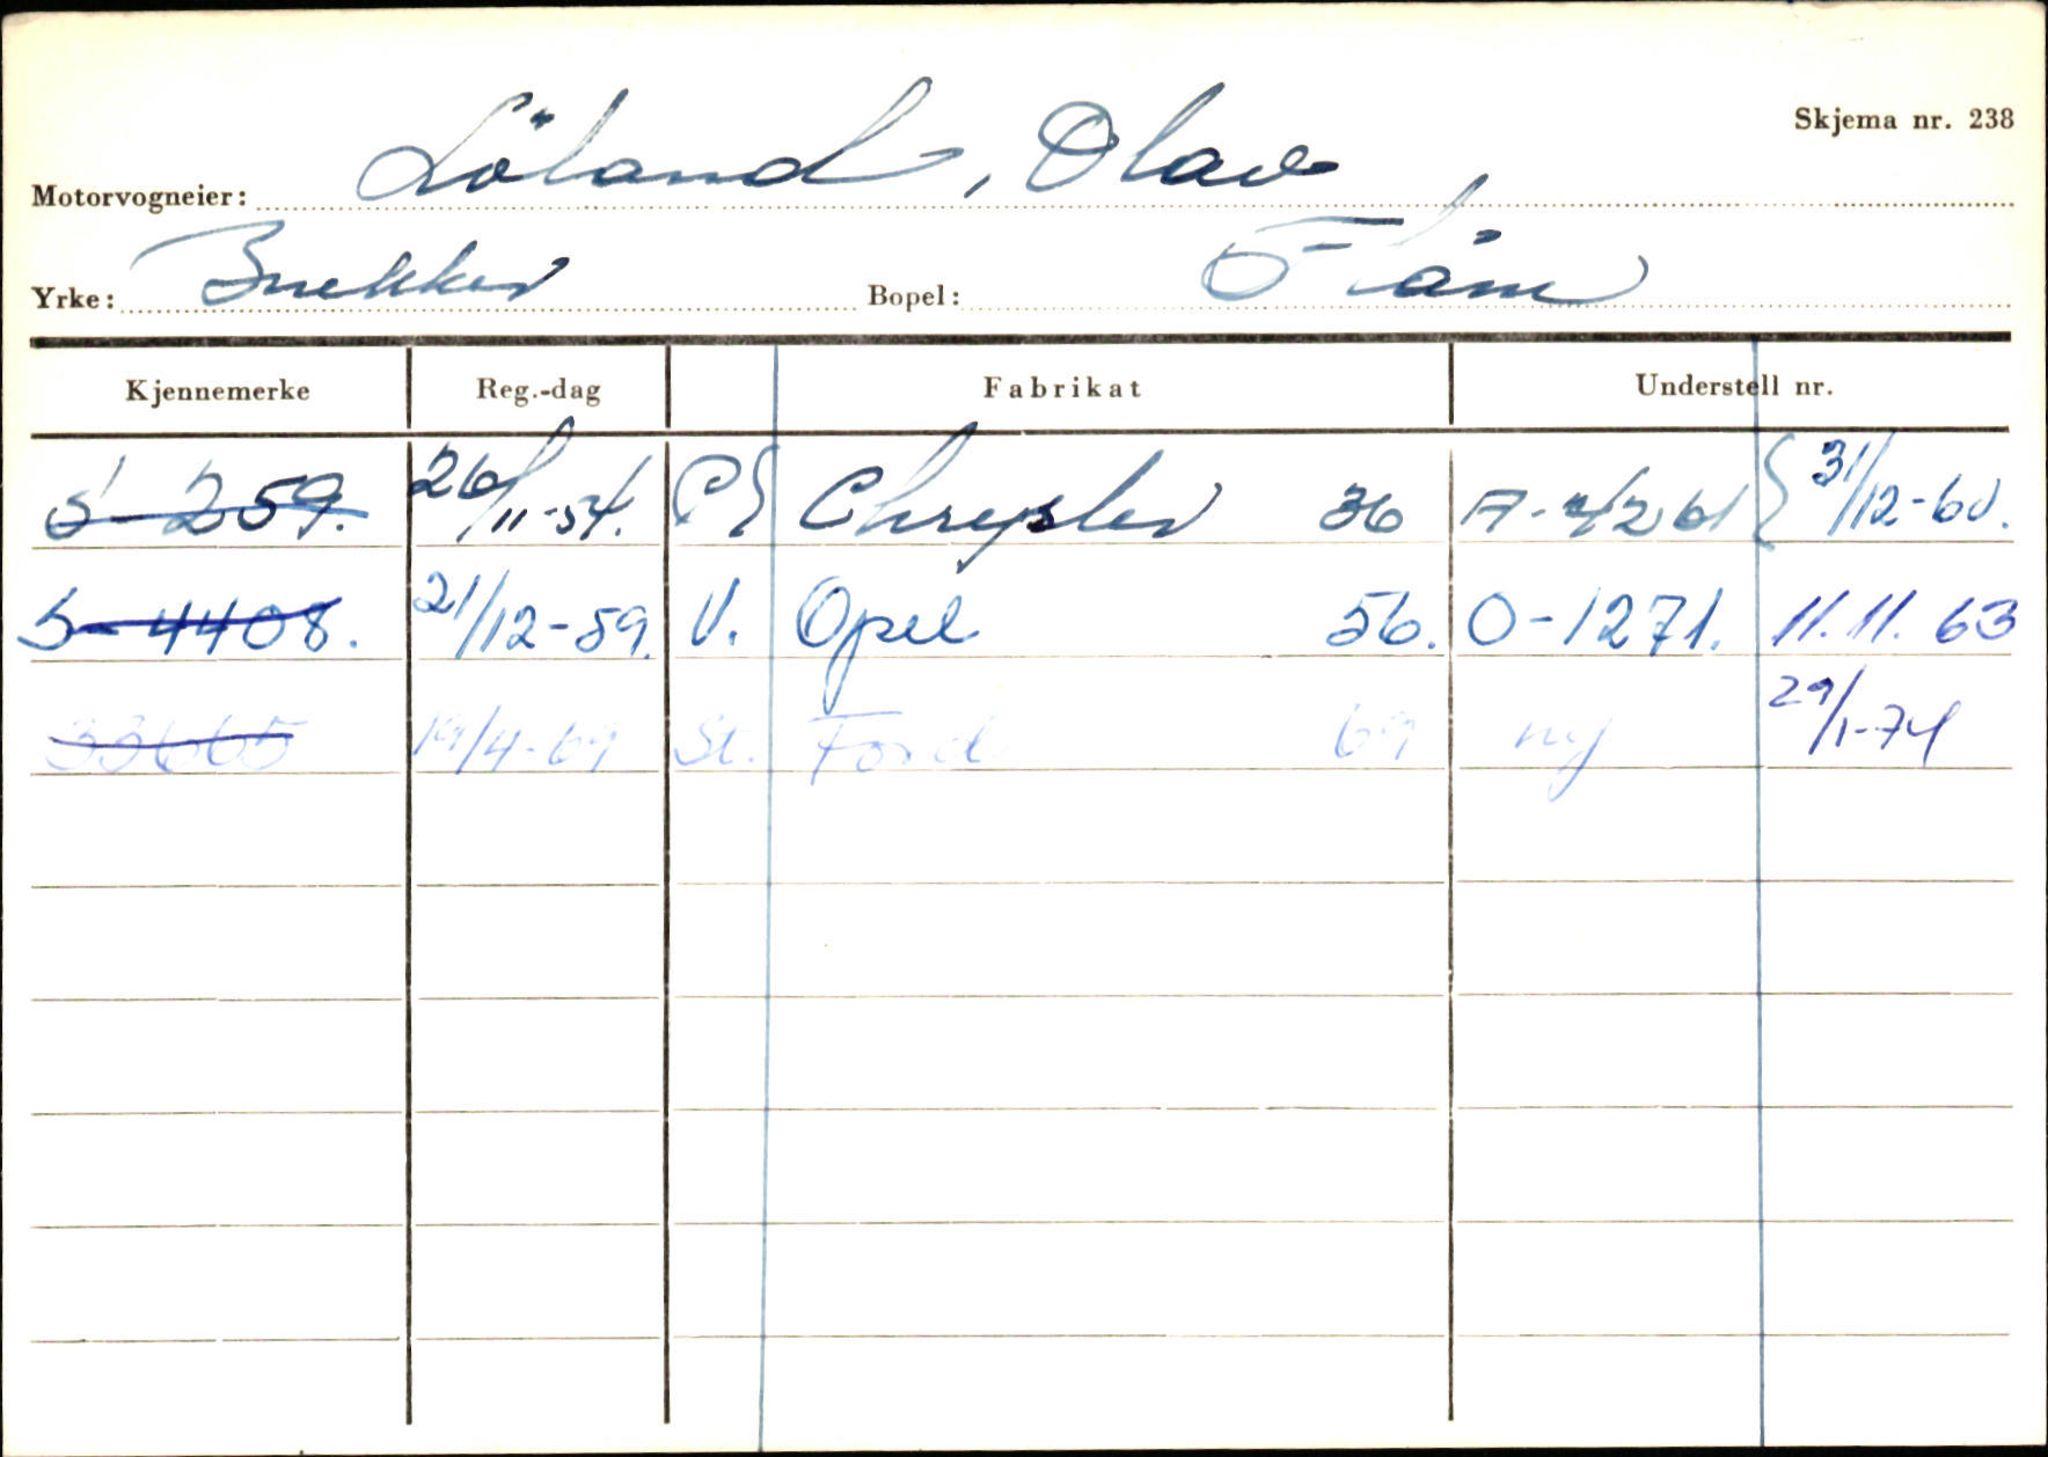 Skjema nr. 238
Motorvogneier: Löland, Olav
Yrke: Snekker Bopel: Flåm
Kjennemerke Reg.-dag Fabrikat Understell nr.
S-259. 26/11-54. P Chrysler 36 A-4261 31/12-60.
S-4408. 21/12-59. V. Opel 56. O-1271. 11.11.63
33665 19/4-69 St. Ford 69 ny 29/1-74